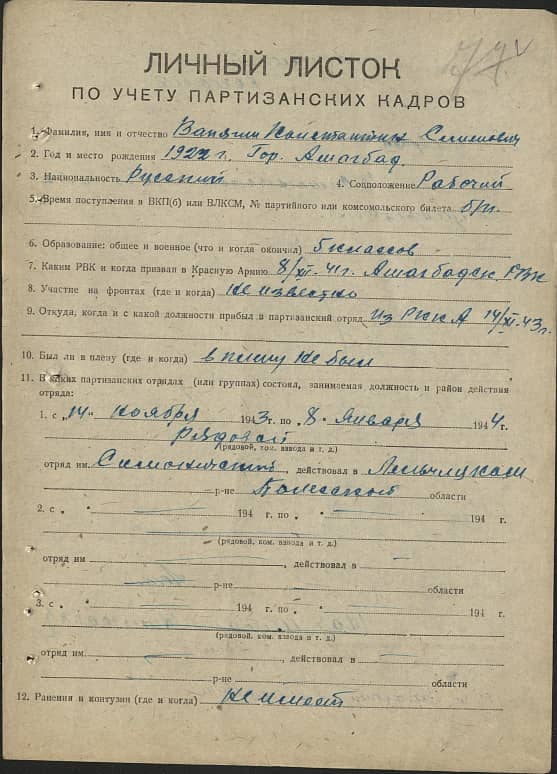 77 v
ЛИЧНЫЙ ЛИСТОК
ПО УЧЕТУ ПАРТИЗАНСКИХ КАДРОВ
1. Фамилия, имя и отчество Константин Семенович
2. Год и место рождения 1922 г. Гор. Ашагбад.
3. Национальность Русский 4. Соцположение Рабочий
5. Время поступления в ВКП(б) или ВЛКСМ, № партийного или комсомольского билета б/п.
6. Образование: общее и военное (что и когда окончил) 5 классов
7. Каким РВК и когда призван в Красную Армию 8/XI-41 г. Ашагбадск РВК
8. Участие на фронтах (где и когда) не известно
9. Откуда, когда и с какой должности прибыл в партизанский отряд из РККА 14/XI-43 г.
10. Был ли в плену (где и когда) в плену не был
11. В каких партизанских отрядах (или группах) состоял, занимаемая должность и район действия
отряда:
1. с „14" ноября 1943 г. по „8" января 1944 г.
Рядовой
(рядовой, ком. взвода и т. д.)
отряд им. , действовал в Лельчицком
р-не Полесской области
2. с „ " 194 г. по „ " 194 г.
(рядовой, ком. взвода и т. д.)
отряд им , действовал в
р-не области
3. с „ " 194 г. по „ " 194 г.
(рядовой, ком. взвода и т. д.)
отряд им. , действовал в
р-не области
12. Ранения и контузии (где и когда) не имеет